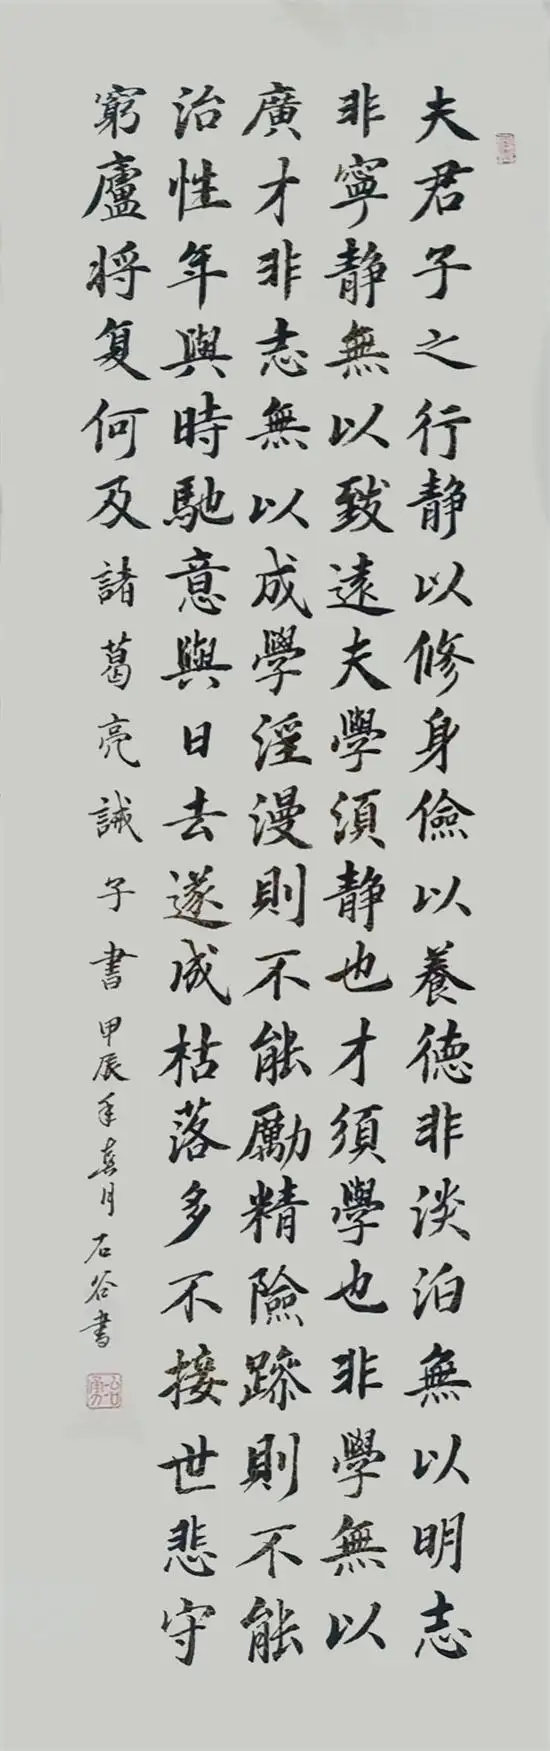 夫君子之行静以修身儉以養德非淡泊無以明志
非寧静無以致遠夫學須静也才須學也非學無以
廣才非志無以成學淫漫則不能勵精險躁則不能
治性年與時馳意與日去遂成枯落多不接世悲守
窮廬将复何及諸葛亮誡子書甲辰年春月石谷書